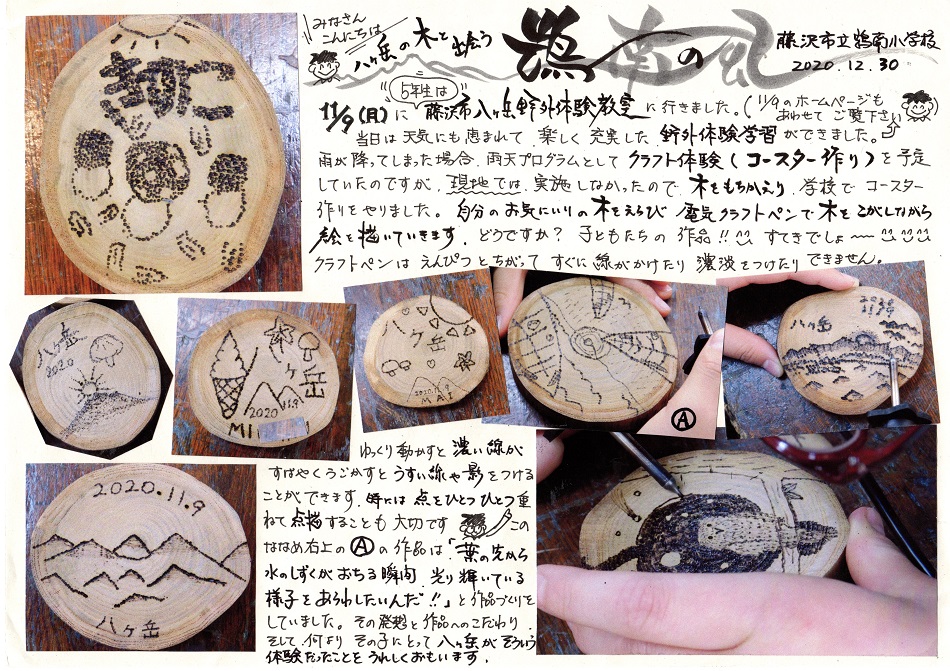 みなさん
こんにちは
八ヶ岳の木と出会う
鵠南の風
藤沢市立鵠南小学校
2020.12.30
5年生は
11/9(月)に 藤沢市八ヶ岳野外体験教室に行きました。(11/9のホームページも
あわせてご覧下さい
当日は天気にも恵まれて 楽しく充実した 野外体験学習ができました。
雨が降ってしまった場合、雨天プログラムとして クラフト体験(コースター作り)を予定
していたのですが、現地では、実施しなかったので 木をもちかえり、学校で コースター
作りをやりました。自分のお気にいりの木をえらび 電気クラフトペンで木をこがしながら
絵を描いていきます。どうですか? 子どもたちの 作品!! すてきでしょ〜
クラフトペンは えんぴつとちがって すぐに線がかけたり 濃淡をつけたりできません。
八ヶ岳
2020
八ヶ岳
2020 11.9
八ヶ岳
MAI
A
2020
11.9
八ヶ岳
2020.11.9
八ヶ岳
ゆっくり動かすと 濃い線が
すばやくうごかすと うすい線や影をつける
ことができます。時には 点をひとつひとつ重
ねて 点描することも 大切です この
ななめ右上の Ⓐ の作品は「葉の先から
水のしずくがおちる瞬間、光り輝いている
様子をあらわしたいんだ!!」と作品づくりを
していました。その発想と作品へのこだわり、
そして 何より その子にとって 八ヶ岳がそういう
体験だったことを うれしくおもいます。